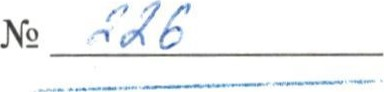 № 226